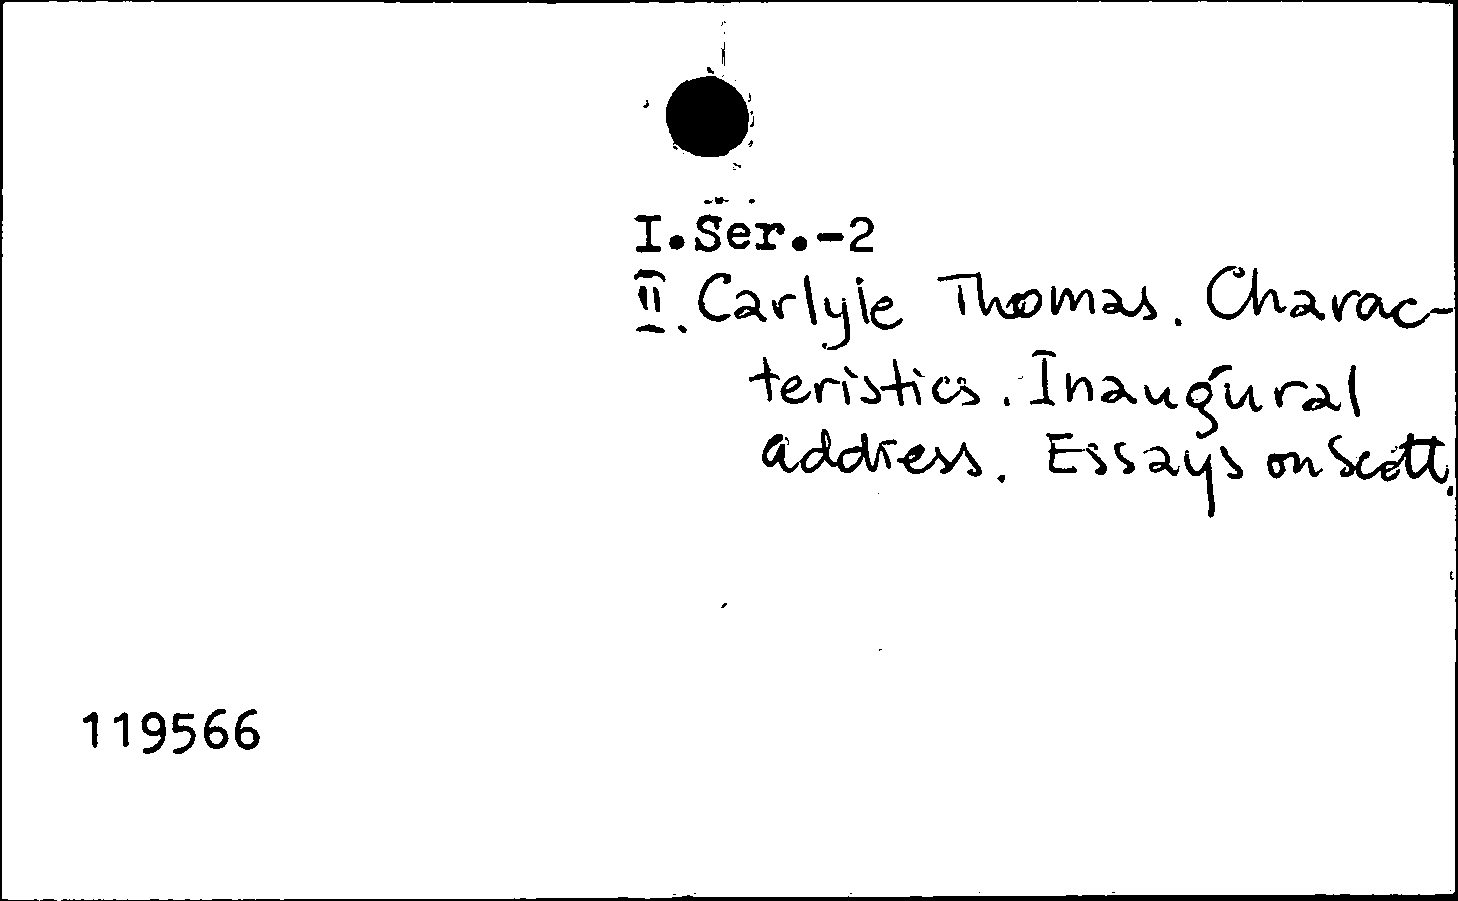 I.Ser.-2
II. Carlyle Thomas. Charac-
teristics. Inaugural
address. Essays on Scott.
119566